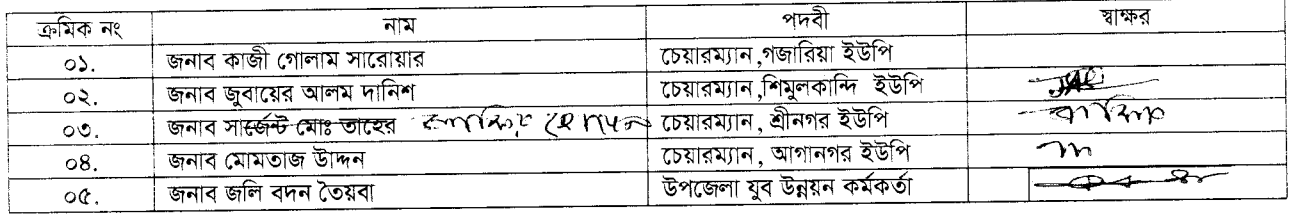 ক্রমিক নং নাম পদবী স্বাক্ষর
০১. জনাব কাজী গোলাম সারোয়ার চেয়ারম্যান,গজারিয়া ইউপি
০২. জনাব জুবায়ের আলম দানিশ চেয়ারম্যান,শিমুলকান্দি ইউপি
০৩. জনাব সার্জেন্ট মোঃ তাহের চেয়ারম্যান, শ্রীনগর ইউপি
০৪. জনাব মোমতাজ উদ্দিন চেয়ারম্যান, আগানগর ইউপি
০৫. জনাব জলি বদন তৈয়বা উপজেলা যুব উন্নয়ন কর্মকর্তা